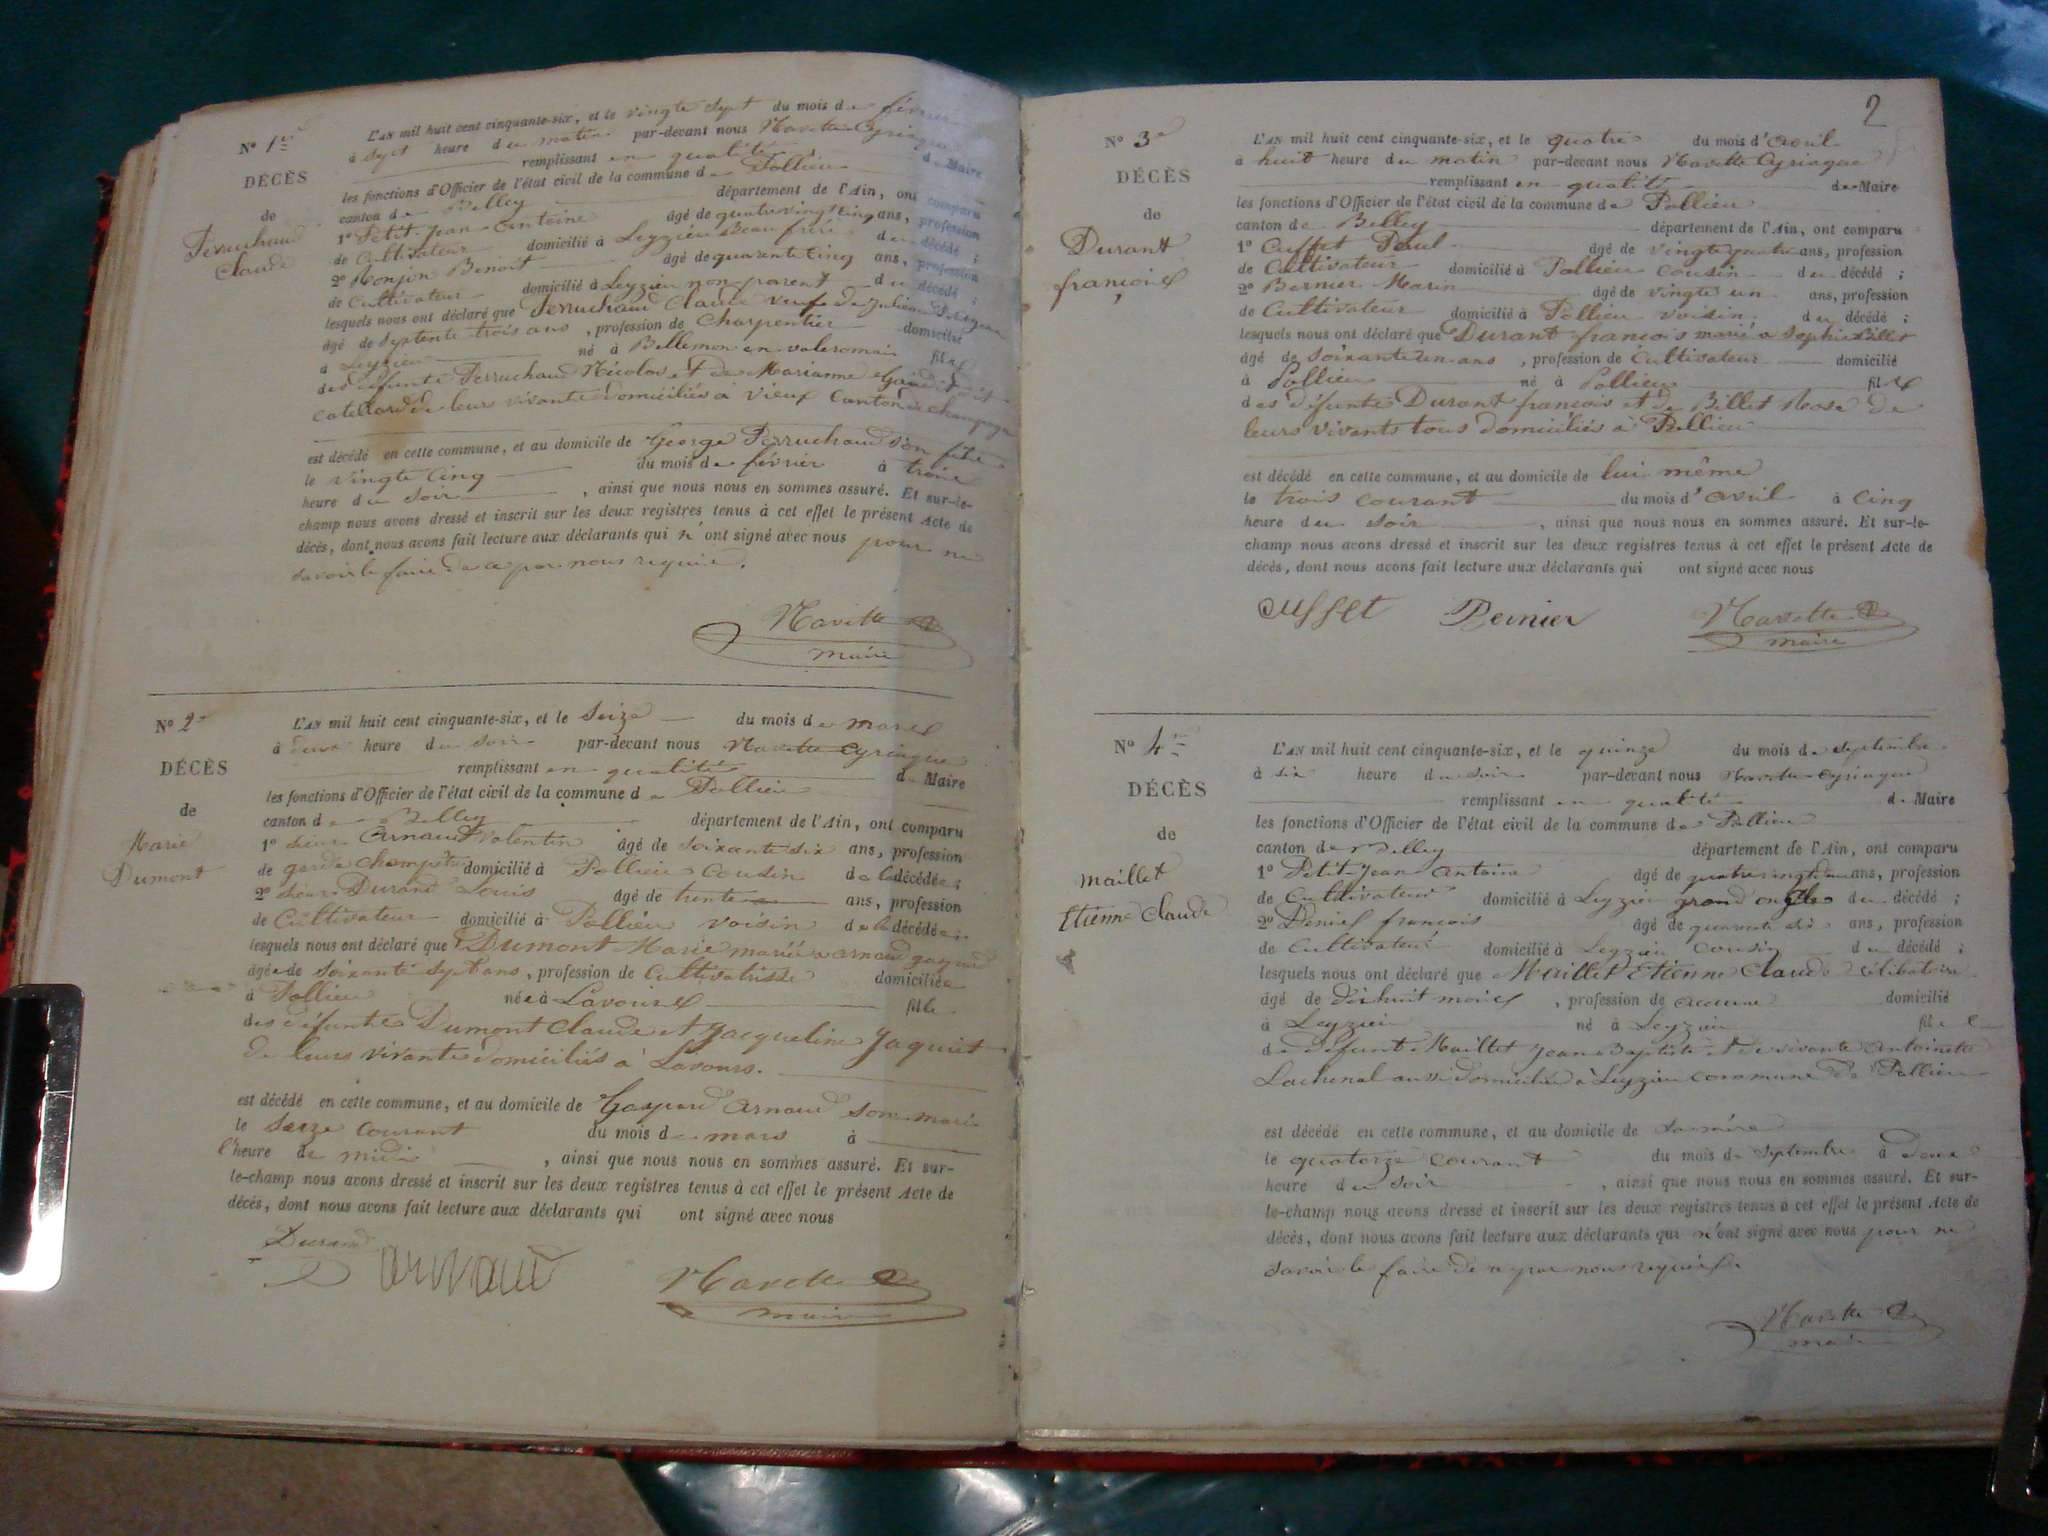 N° 1er
DÉCÈS
de
Ferruchaud
Claude
L'AN mil huit cent cinquante-six, et le vingte sept du mois de février
à sept heure du matin par-devant nous Navette Cyriaque
remplissant en qualité de Maire
les fonctions d'Officier de l'état civil de la commune de Pollieu
canton de Belley département de l'Ain, ont comparu
1° Petit-Jean antoine âgé de quatrevingt cinq ans, profession
de Cultivateur domicilié à Leyzieu Beau frère du décédé ;
2° Monjon Benoit âgé de quarente cinq ans, profession
de Cultivateur domicilié à Leyzieu non parent du décédé ;
lesquels nous ont déclaré que Ferruchaud Claude veuf de Julienne
âgé de Septente trois ans, profession de Charpentier domicilié
à Leyzieu né à Bellemon en valeromai fils
des défunts Ferruchaud Nicolas et de Marianne
Catellard de leurs vivants domiciliés à Vieux Canton de champagne
est décédé en cette commune, et au domicile de George Ferruchaud son fils
le vingte Cinq du mois de février à trois
heure du soir, ainsi que nous nous en sommes assuré. Et sur-le-
champ nous avons dressé et inscrit sur les deux registres tenus à cet effet le présent Acte de
décès, dont nous avons fait lecture aux déclarants qui n' ont signé avec nous pour ne
savoir le faire de ce par nous requis.
Navette
maire
N° 2e
DÉCÈS
de
Marie
Dumont
L'AN mil huit cent cinquante-six, et le Seize du mois de mars
à deux heure du soir par-devant nous Navette Cyriaque
remplissant en qualité de Maire
les fonctions d'Officier de l'état civil de la commune de Pollieu
canton de Belley département de l'Ain, ont comparu
1° sieur Arnaud Valentin âgé de soixante six ans, profession
de garde champêtre domicilié à Pollieu cousin de la décédée ;
2° sieur Durand Louis âgé de trente ans, profession
de Cultivateur domicilié à Pollieu voisin de la décédée ;
lesquels nous ont déclaré que Dumont Marie mariée a arnaud gaspard
âgée de soixante sept ans, profession de Cultivatrisse domiciliée
à Pollieu née à Lavours fille
des défunts Dumont Claude et Jacqueline Jaquiet
de leurs vivants domiciliés à Lavours.
est décédé en cette commune, et au domicile de Gaspard Arnaud son mari
le Seize courant du mois de mars à
l'heure de midi, ainsi que nous nous en sommes assuré. Et sur-
le-champ nous avons dressé et inscrit sur les deux registres tenus à cet effet le présent Acte de
décès, dont nous avons fait lecture aux déclarants qui ont signé avec nous
Durand arnaud Navette
maire
2
N° 3e
DÉCÈS
de
Durant
françois
L'AN mil huit cent cinquante-six, et le quatre du mois d'avril
à huit heure du matin par-devant nous Navette Cyriaque
remplissant en qualité de Maire
les fonctions d'Officier de l'état civil de la commune de Pollieu
canton de Belley département de l'Ain, ont comparu
1° Cuffet Paul âgé de vingte quatre ans, profession
de Cultivateur domicilié à Pollieu cousin du décédé ;
2° Bernier Marin âgé de vingte un ans, profession
de Cultivateur domicilié à Pollieu voisin du décédé ;
lesquels nous ont déclaré que Durant françois marié a Sophie Billet
âgé de soixante un ans, profession de Cultivateur domicilié
à Pollieu né à Pollieu fils
des défunts Durant françois et de Billet Rose de
leurs vivants tous domiciliés à Pollieu
est décédé en cette commune, et au domicile de lui même
le trois courant du mois d'avril à Cinq
heure du soir, ainsi que nous nous en sommes assuré. Et sur-le-
champ nous avons dressé et inscrit sur les deux registres tenus à cet effet le présent Acte de
décès, dont nous avons fait lecture aux déclarants qui ont signé avec nous
cuffet Bernier Navette
maire
N° 4e
DÉCÈS
de
maillet
Etienne Claude
L'AN mil huit cent cinquante-six, et le quinze du mois de septembre
à six heure du soir par-devant nous Navette Cyriaque
remplissant en qualité de Maire
les fonctions d'Officier de l'état civil de la commune de Pollieu
canton de Belley département de l'Ain, ont comparu
1° Petit-Jean Antoine âgé de ans, profession
de Cultivateur domicilié à Leyzieu grand oncle du décédé ;
2° Deniel françois âgé de quarante six ans, profession
de Cultivateur domicilié à Leyzieu cousin du décédé ;
lesquels nous ont déclaré que Maillet Etienne Claude Célibataire
âgé de dixhuit mois, profession de aucune domicilié
à Leyzieu né à Leyzieu fils
de défunt Maillet Jean Baptiste et de vivante Antoinette
Lachenal aussi domiciliée à Leyzieu commune de Pollieu
est décédé en cette commune, et au domicile de sa mère
le quatorze courant du mois de septembre à deux
heure du soir, ainsi que nous nous en sommes assuré. Et sur-
le-champ nous avons dressé et inscrit sur les deux registres tenus à cet effet le présent Acte de
décès, dont nous avons fait lecture aux déclarants qui n'ont signé avec nous pour ne
savoir le faire de ce par nous requis.
Navette
maire